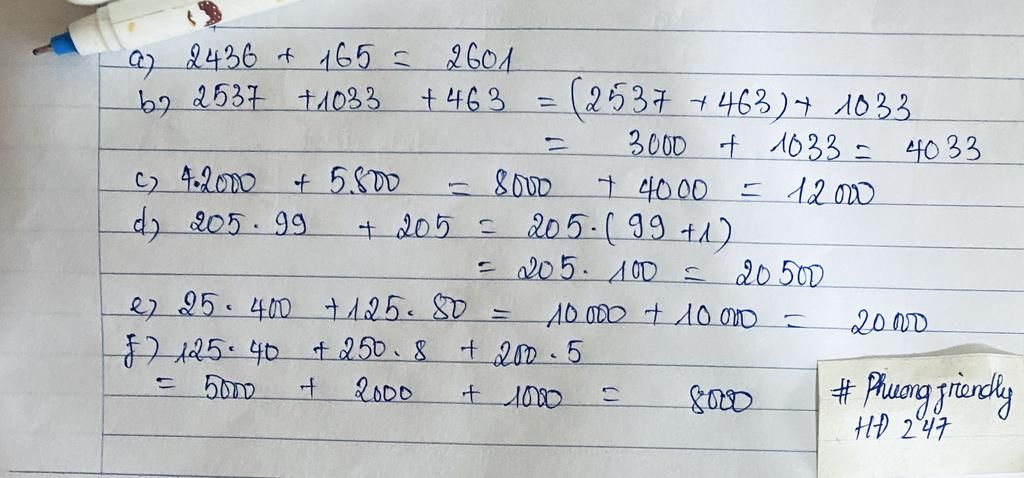 a) 2436 + 165 = 2601
b) 2537 + 1033 + 463 = (2537 + 463) + 1033
= 3000 + 1033 = 4033
c) 4.2000 + 5.800 = 8000 + 4000 = 12000
d) 205.99 + 205 = 205.(99+1)
= 205.100 = 20500
e) 25.400 + 125.80 = 10000 + 10000 = 20000
f) 125.40 + 250.8 + 200.5
= 5000 + 2000 + 1000 = 8000
# Phuong friendly
HĐ 247